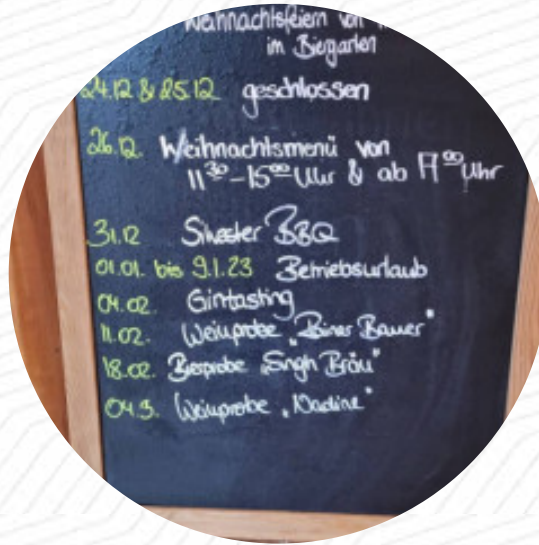 Weihnachtsfeiern von
im Biergarten
24.12 & 25.12 geschlossen
26.12. Weihnachtsmenü von
11³⁰-15⁰⁰ Uhr & ab 17⁰⁰ Uhr
31.12 Silvester BBQ
01.01. bis 9.1.23 Betriebsurlaub
04.02. Gintasting
11.02. Weinprobe „ Bauer"
18.02. Bierprobe „Singh Bräu"
04.3. Weinprobe „Nadine"